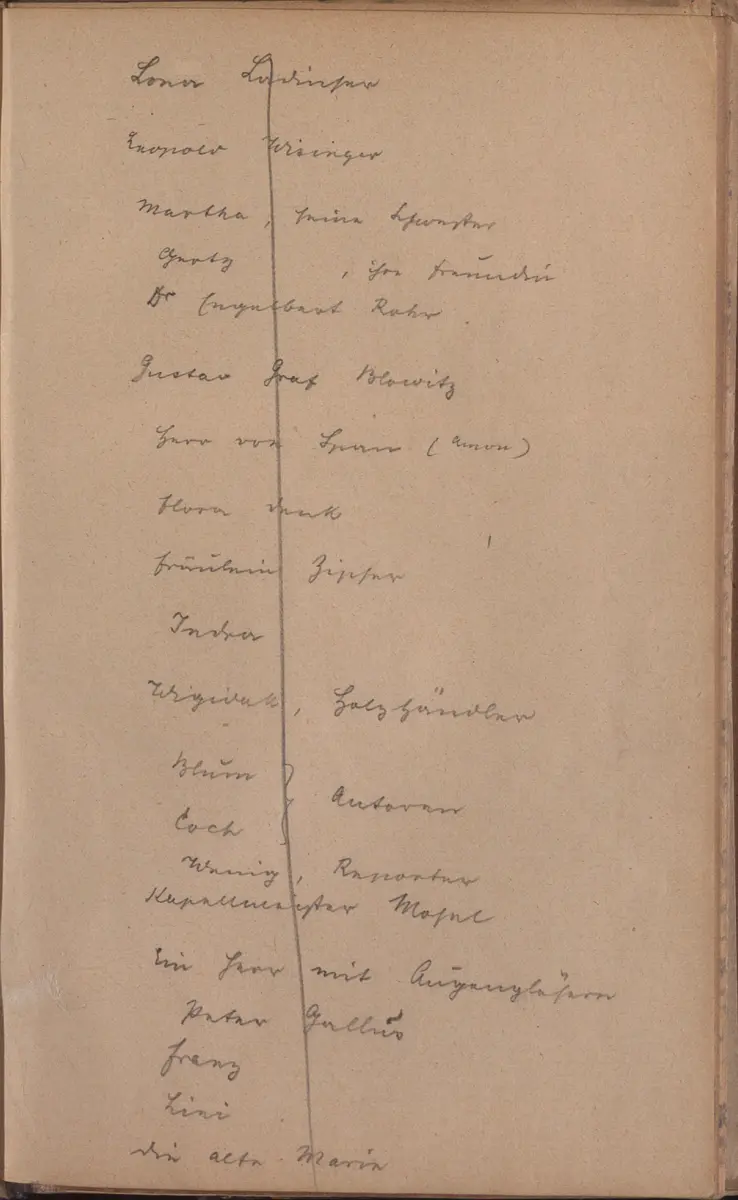 Lona Ladinser
Leopold Wisinger
Martha, seine Schwester
Gerty , ihre Freundin
Dr Engelbert Rohr
Gustav Graf Blowitz
Herr von Span (Amon)
Flora Denk
Fräulein Zipser
Indra
Wigiwak, Holzhändler
Blum
Coch } Autoren
Wenig, Reporter
Kapellmeister Mosel
Ein Herr mit Augengläsern
Peter Gallus
Franz
Lini
Die alte Marie